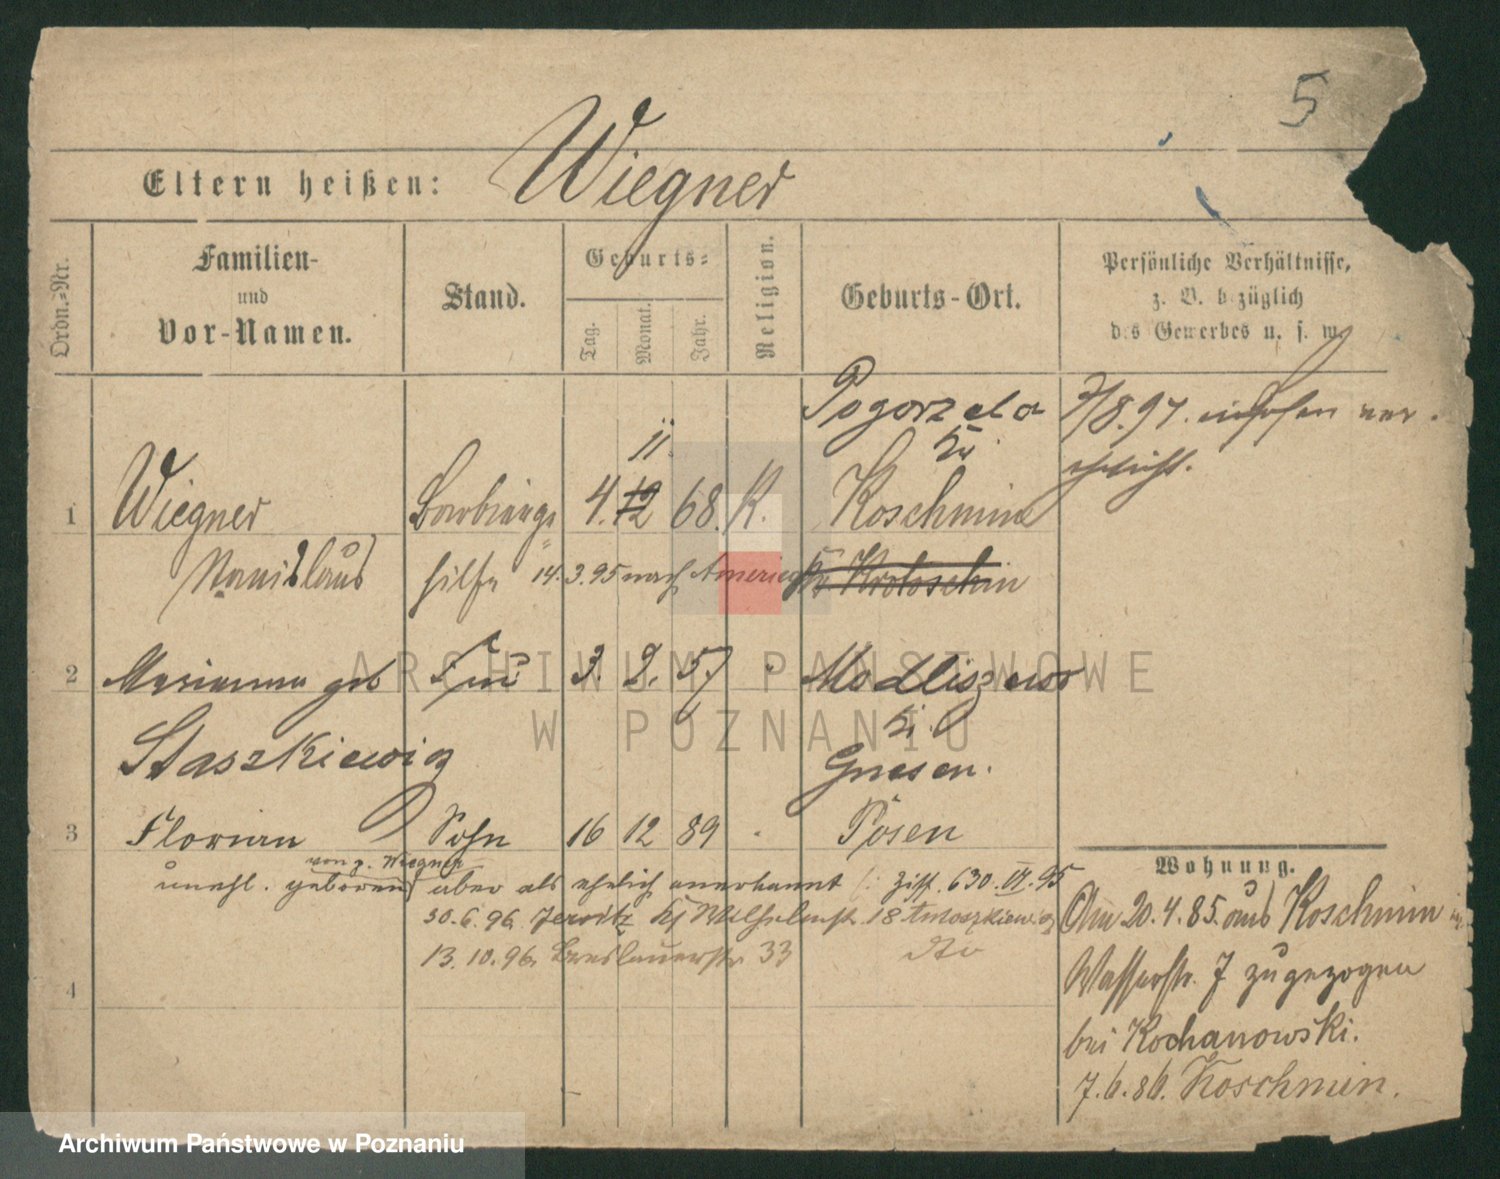 5
Eltern heißen: Wiegner
Ordn.-Nr.
Familien-
und
Vor-Namen.
Stand.
Geburts-
Tag.
Monat.
Jahr.
Religion.
Geburts-Ort.
Persönliche Verhältnisse,
z. B. bezüglich
des Gewerbes u. s. w.
Pogorzela
7/8.97.
Kr.
11.
1 Wiegner Barbierge 4. 12 68. K. Koschmin
Stanislaus hilfe 14.3.95 nach America Kr Krotoschin
2 Marianna geb Frau 3. 2. 57 Modliszewo
Kr.
Staszkiewicz Gnesen.
3 Florian Sohn 16 12 89 Posen
von p. Wiegner
unehl. geboren aber als ehelich anerkannt Ziff. 630. VI. 95
30.6.96 Jersitz Wilhelmstr. 18 Antoszkiewicz
13.10.96. Breslauerstr 33 dto
4
Wohnung.
Am 20.4.85. aus Koschmin
Wasserstr. 7 zugezogen
bei Kochanowski.
7.6.86. Koschmin.
ARCHIWUM PAŃSTWOWE
W POZNANIU
Archiwum Państwowe w Poznaniu